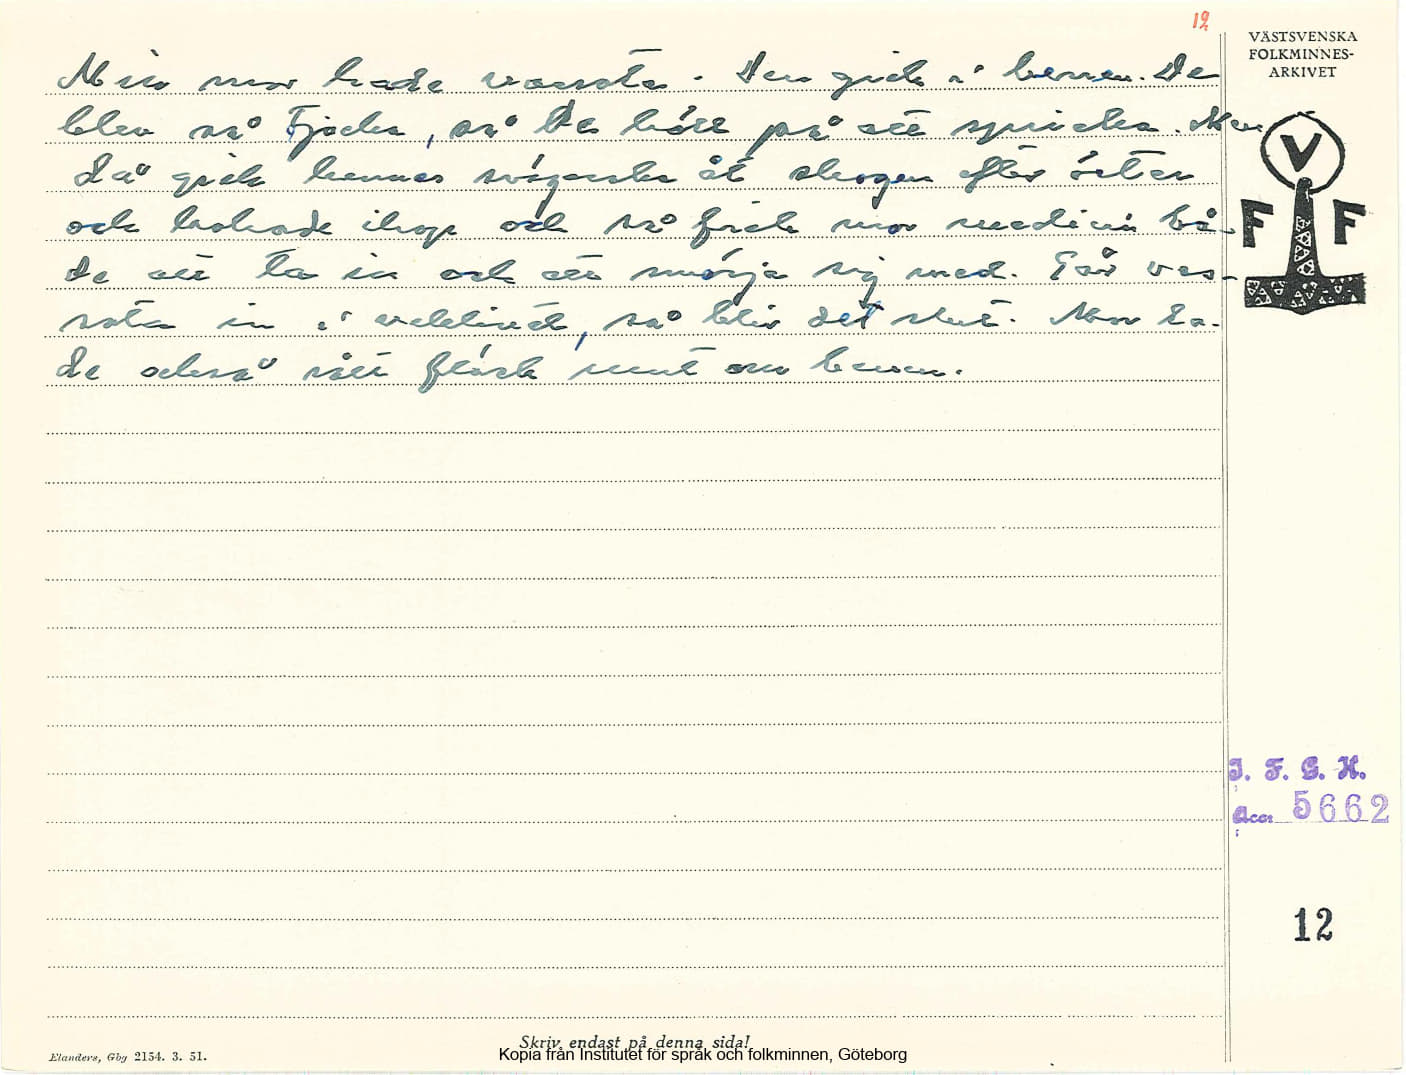 12
VÄSTSVENSKA
FOLKMINNES-
ARKIVET
Min mor hade vassota. Den gick i benen. De
blev så tjocka, så de höll på att spricka. Men
då gick hennes svägerska åt skogen efter örter
och kokade ihop och så fick mor medicin bå-
de att ta in och att smörja sig med. Går vas-
sota in i vekelivet, så blir det slut. Mor la-
de också rått fläsk runt om benen.
V
F F
I. F. G. H.
Acc: 5662
12
Skriv endast på denna sida!
Elanders, Gbg 2154. 3. 51.
Kopia från Institutet för språk och folkminnen, Göteborg